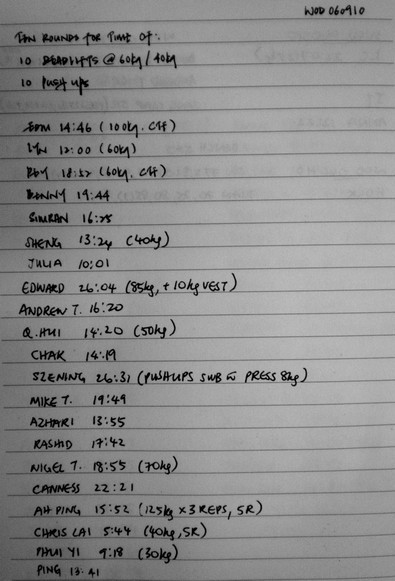 WOD 060910
TEN ROUNDS FOR TIME OF:
10 DEADLIFTS @ 60kg / 40kg
10 PUSH UPS
14:46 (100kg, CFF)
LYN 12:00 (60kg)
ROY 18:52 (60kg, CFF)
BENNY 19:44
SIMRAN 16:25
SHENG 13:24 (40kg)
JULIA 10:01
EDWARD 26:04 (85kg, + 10kg VEST)
ANDREW T. 16:20
Q.HUI 14:20 (50kg)
CHAK 14:19
SZENING 26:31 (PUSHUPS SUB W PRESS 8kg)
MIKE T. 19:49
AZHARI 13:55
RASHID 17:42
NIGEL T. 18:55 (70kg)
CANNESS 22:21
AH PING 15:52 (125kg × 3 REPS, 5R)
CHRIS LAI 5:44 (40kg, 5R)
PHUI YI 9:18 (30kg)
PING 13:41